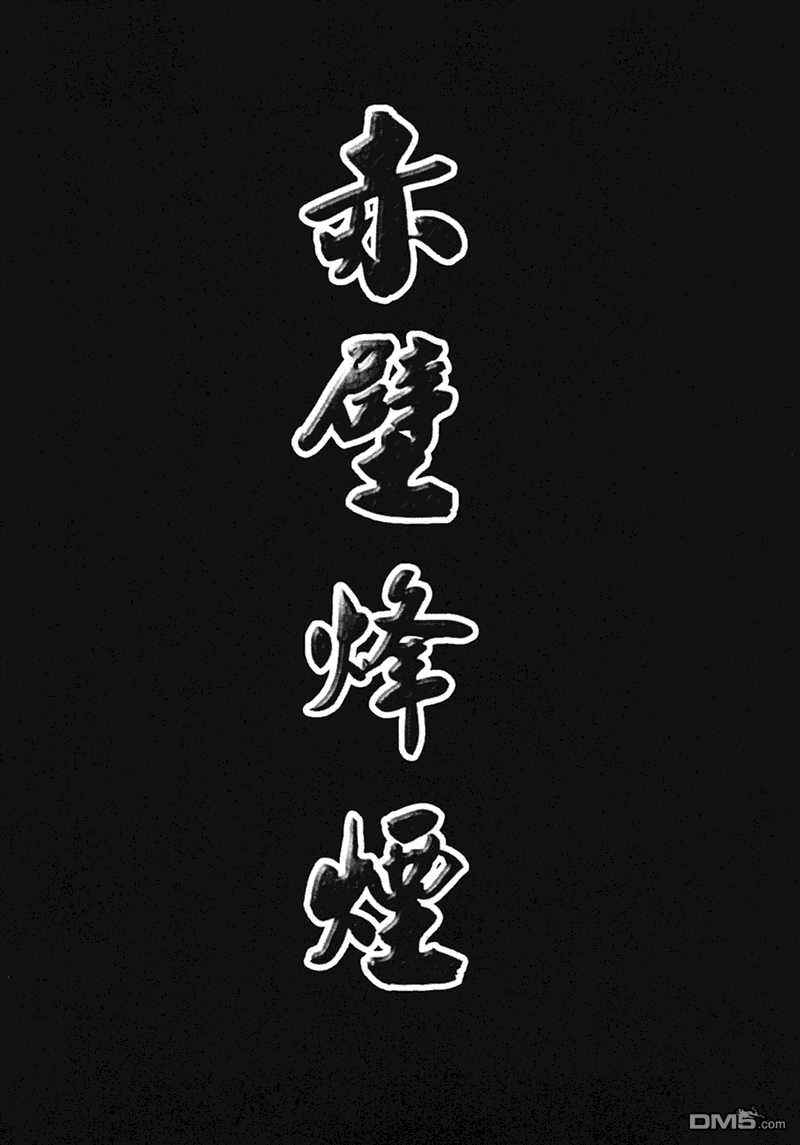 赤壁烽煙
DM5.com